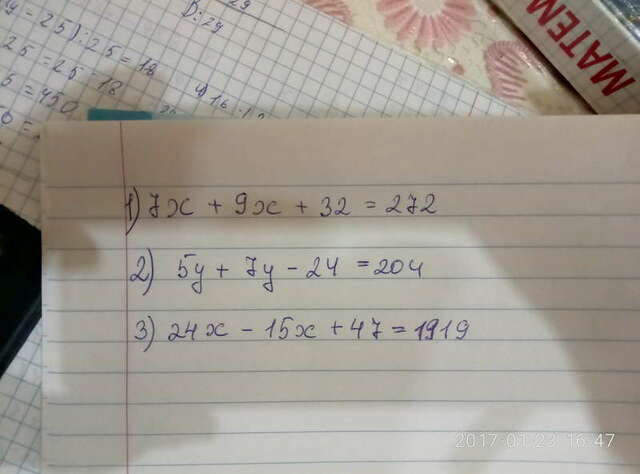 25):25=18
25=25·18
5=450
29
D:29
МАТЕМ
1) 7x + 9x + 32 = 272
2) 5y + 7y - 24 = 204
3) 24x - 15x + 47 = 1919
2017-01-23 16:47